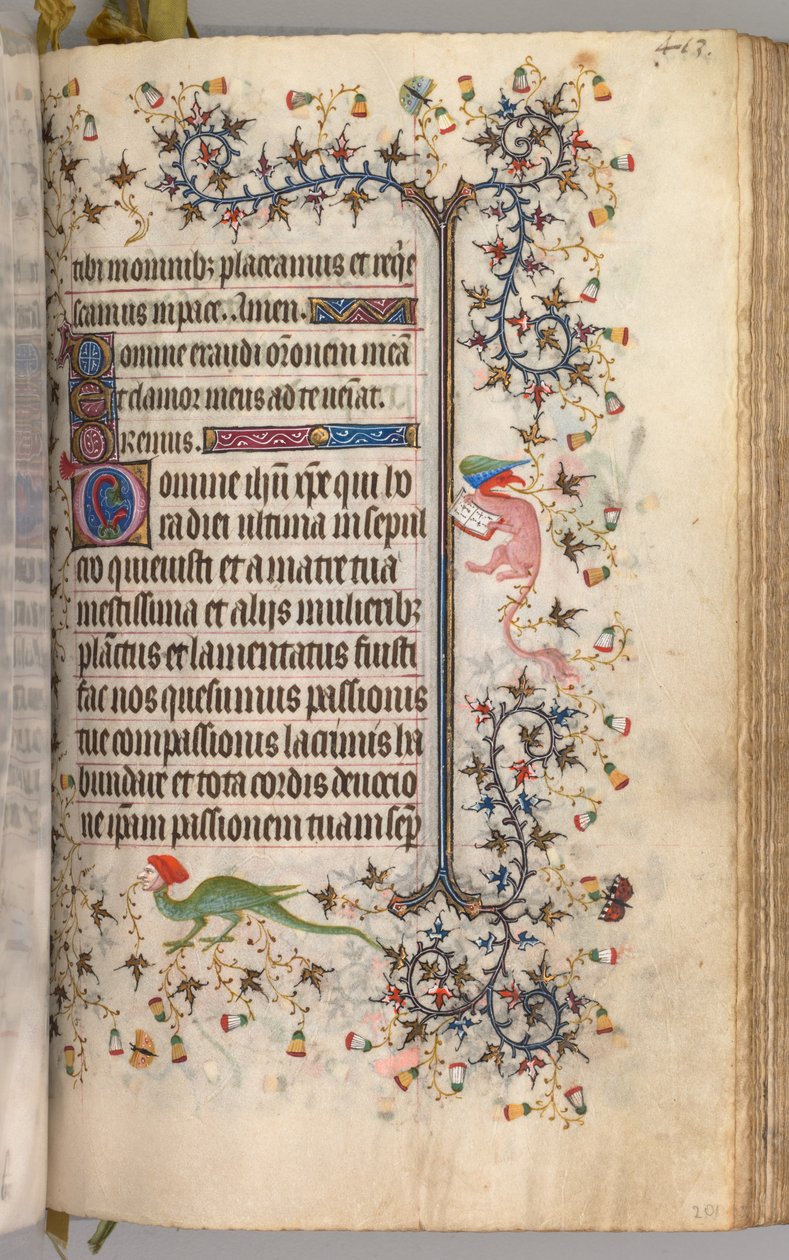 463.
tibi in omnibꝫ placeamus et reqͥe
scamus in pace. Amen.
Domine exaudi or̄onem meā
Et clamor meus ad te uēiat.
Oremus.
Domine ih̄u xp̄e qui ho
ra diei ultima in sepul
cro quieuisti et a matre tua
mestissima et alijs mulieribꝫ
plāctus et lamentatus fuisti
fac nos quesumus passionis
tue compassionis lacrimis ha
bundare et tota cordis deuocio
ne ip̄am passionem tuam sep̄
201